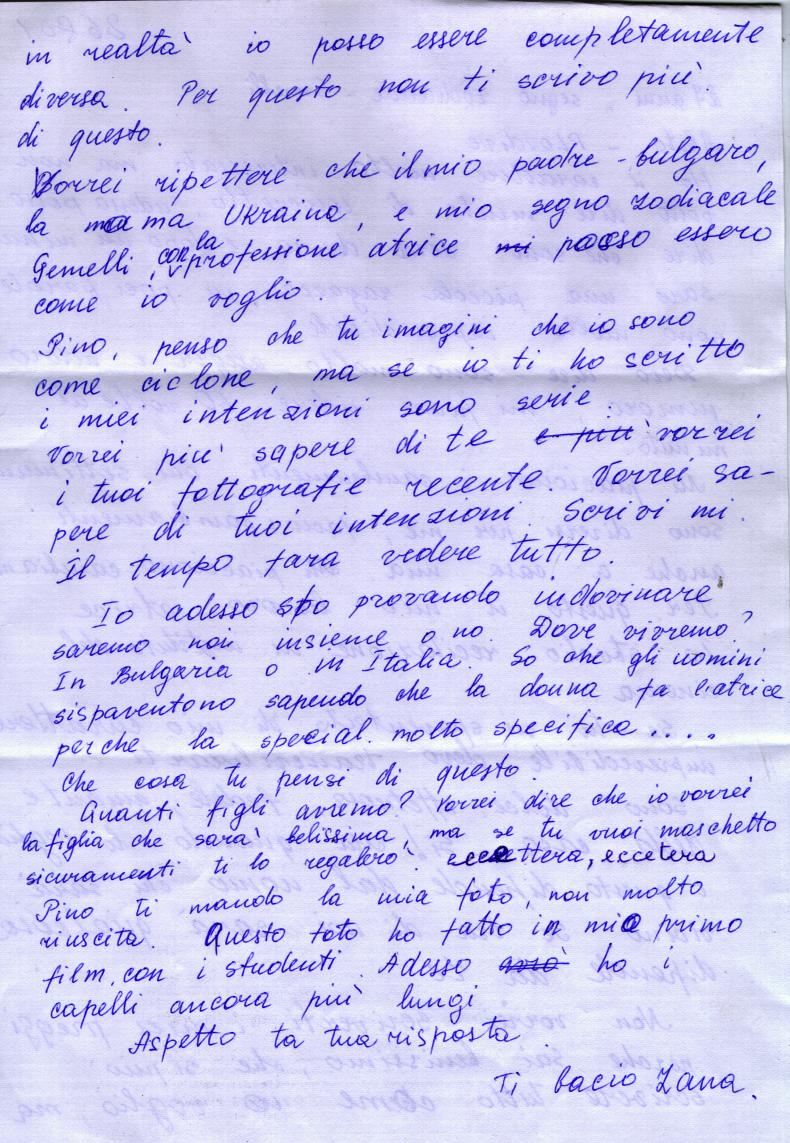 in realtà io posso essere completamente
diversa. Per questo non ti scrivo più
di questo.
Vorrei ripettere che il mio padre - bulgaro,
la mama Ukraina, e mio segno zodiacale
Gemelli, con la professione atrice mi posso essere
come io voglio.
Pino, penso che tu imagini che io sono
come ciclone, ma se io ti ho scritto
i miei intenzioni sono serie.
Vorrei più sapere di te e più vorrei
i tuoi fottografie recente. Vorrei sa-
pere di tuoi intenzioni. Scrivi mi.
Il tempo fara vedere tutto.
Io adesso sto provando indovinare
saremo noi insieme o no. Dove vivremo?
In Bulgaria o in Italia. So che gli uomini
sispaventono sapendo che la donna fa l'atrice
perche la special. molto specifica ....
Che cosa tu pensi di questo.
Quanti figli avremo? Vorrei dire che io vorrei
la figlia che sarà belissima, ma se tu vuoi maschetto
sicuramenti ti lo regalero. eccettera, eccetera
Pino ti mando la mia foto, non molto
riuscita. Questo foto ho fatto in mio primo
film, con i studenti. Adesso ho i
capelli ancora più lungi
Aspetto ta tua risposta
Ti bacio Zana.